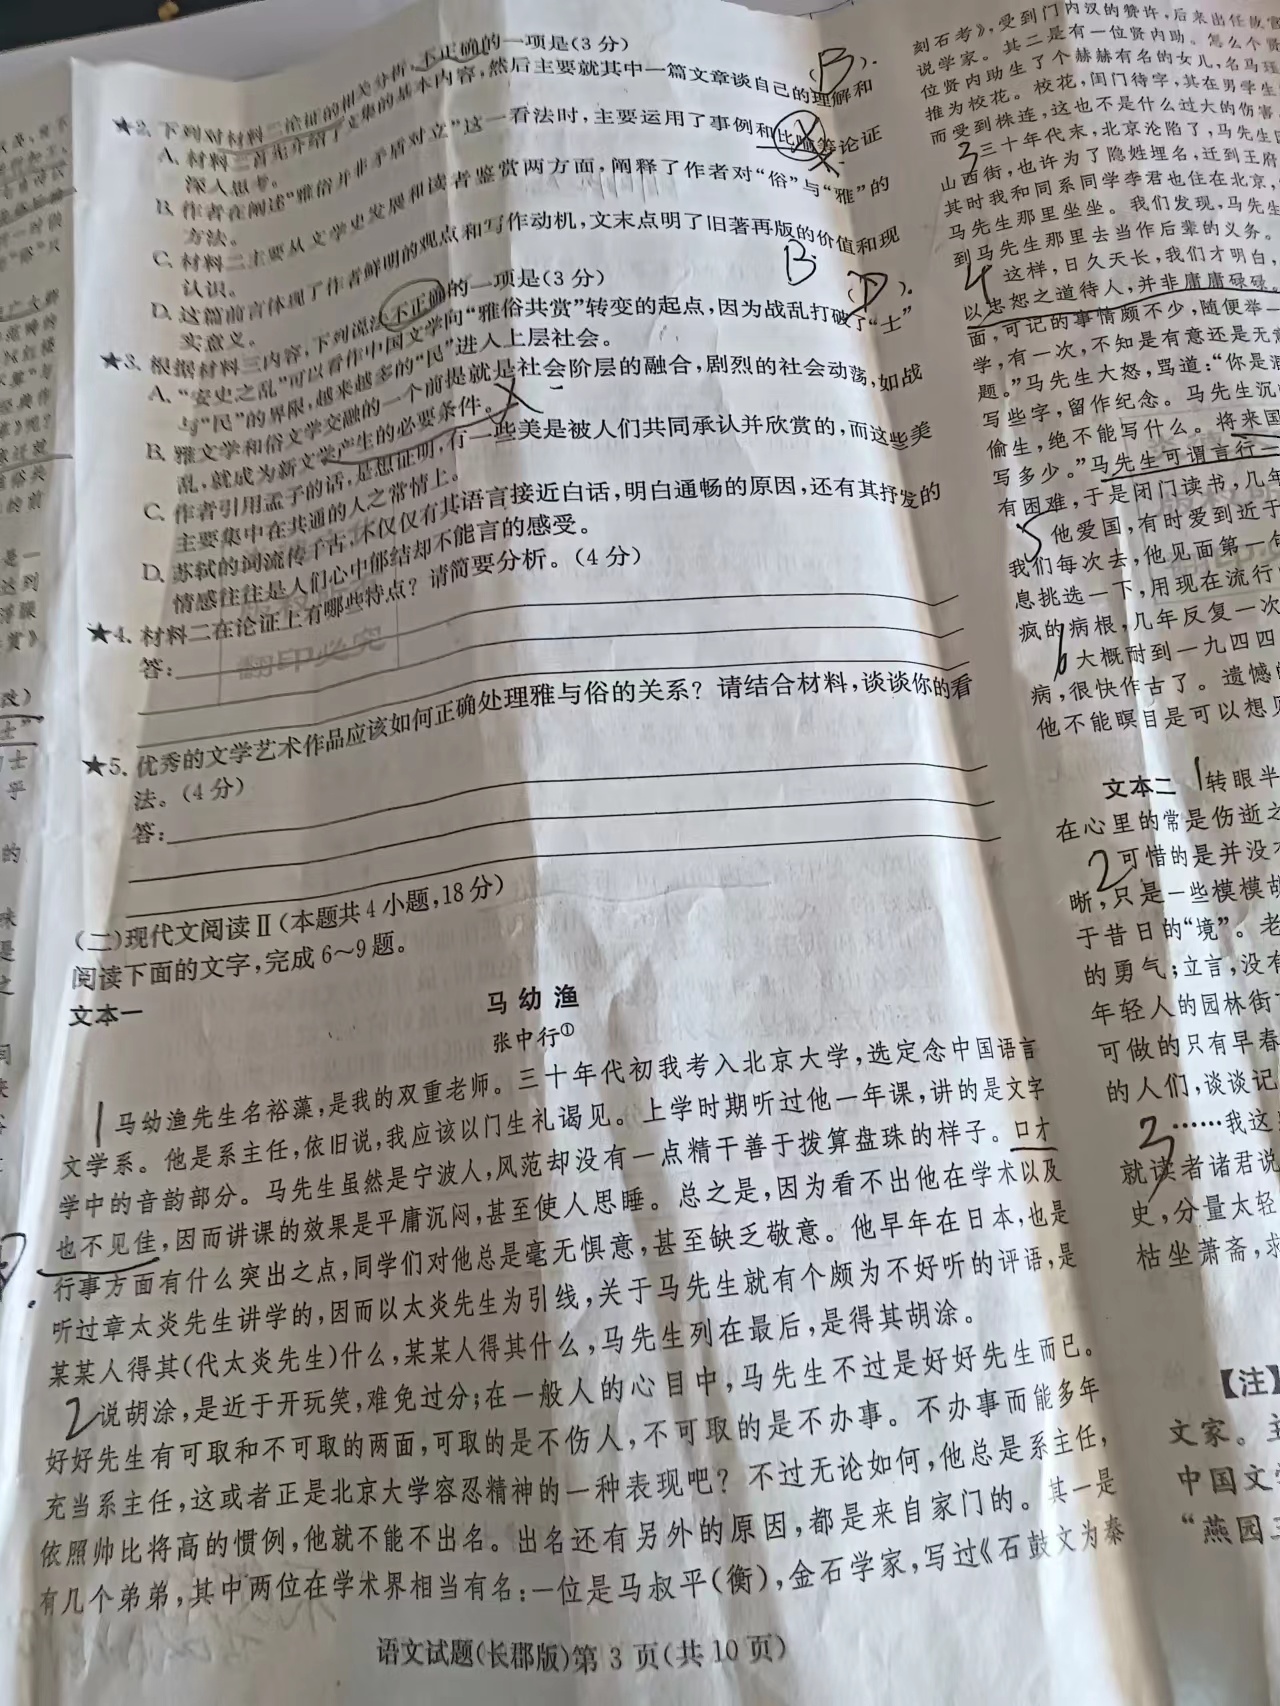 ★2. 下列对材料二论证的相关分析,不正确的一项是(3分)
(B).
A. 材料二首先介绍了文集的基本内容,然后主要就其中一篇文章谈自己的理解和
深入思考。
B. 作者在阐述“雅俗并非矛盾对立”这一看法时,主要运用了事例和比喻等论证
方法。
C. 材料二主要从文学史发展和读者鉴赏两方面,阐释了作者对“俗”与“雅”的
认识。
D. 这篇前言体现了作者鲜明的观点和写作动机,文末点明了旧著再版的价值和现
实意义。
B
★3. 根据材料三内容,下列说法不正确的一项是(3分)
(D).
A. “安史之乱”可以看作中国文学向“雅俗共赏”转变的起点,因为战乱打破了“士”
与“民”的界限,越来越多的“民”进入上层社会。
B. 雅文学和俗文学交融的一个前提就是社会阶层的融合,剧烈的社会动荡,如战
乱,就成为新文学产生的必要条件。
C. 作者引用孟子的话,是想证明,有一些美是被人们共同承认并欣赏的,而这些美
主要集中在共通的人之常情上。
D. 苏轼的词流传千古,不仅仅有其语言接近白话,明白通畅的原因,还有其抒发的
情感往往是人们心中郁结却不能言的感受。
★4. 材料二在论证上有哪些特点?请简要分析。(4分)
答:
翻印必究
★5. 优秀的文学艺术作品应该如何正确处理雅与俗的关系?请结合材料,谈谈你的看
法。(4分)
答:
(二)现代文阅读Ⅱ(本题共4小题,18分)
阅读下面的文字,完成6~9题。
文本一
马幼渔
张中行①
1 马幼渔先生名裕藻,是我的双重老师。三十年代初我考入北京大学,选定念中国语言
文学系。他是系主任,依旧说,我应该以门生礼谒见。上学时期听过他一年课,讲的是文字
学中的音韵部分。马先生虽然是宁波人,风范却没有一点精干善于拨算盘珠的样子。口才
也不见佳,因而讲课的效果是平庸沉闷,甚至使人思睡。总之是,因为看不出他在学术以及
行事方面有什么突出之点,同学们对他总是毫无惧意,甚至缺乏敬意。他早年在日本,也是
听过章太炎先生讲学的,因而以太炎先生为引线,关于马先生就有个颇为不好听的评语,是
某某人得其(代太炎先生)什么,某某人得其什么,马先生列在最后,是得其胡涂。
2 说胡涂,是近于开玩笑,难免过分;在一般人的心目中,马先生不过是好好先生而已。
好好先生有可取和不可取的两面,可取的是不伤人,不可取的是不办事。不办事而能多年
充当系主任,这或者正是北京大学容忍精神的一种表现吧?不过无论如何,他总是系主任,
依照帅比将高的惯例,他就不能不出名。出名还有另外的原因,都是来自家门的。其一是
有几个弟弟,其中两位在学术界相当有名:一位是马叔平(衡),金石学家,写过《石鼓文为秦
语文试题(长郡版)第 3 页(共 10 页)
刻石考》,受到门内汉的赞许,后来出任故宫
说学家。其二是有一位贤内助。怎么个贤
位贤内助生了个赫赫有名的女儿,名马珏
推为校花。校花,闺门待字,其在男学生
而受到株连,这也不是什么过大的伤害
3 三十年代末,北京沦陷了,马先生
山西街,也许为了隐姓埋名,迁到王府
其时我和同系同学李君也住在北京,
马先生那里坐坐。我们发现,马先生
到马先生那里去当作后辈的义务。
4 这样,日久天长,我们才明白,
以忠恕之道待人,并非庸庸碌碌。
面,可记的事情颇不少,随便举一
学,有一次,不知是有意还是无意
题。”马先生大怒,骂道:“你是混
写些字,留作纪念。马先生沉
偷生,绝不能写什么。将来国
写多少。”马先生可谓言行一
有困难,于是闭门读书,几年
5 他爱国,有时爱到近于
我们每次去,他见面第一句
息挑选一下,用现在流行
疯的病根,几年反复一次
6 大概耐到一九四四
病,很快作古了。遗憾
他不能瞑目是可以想见
文本二
1 转眼半
在心里的常是伤逝之
2 可惜的是并没
晰,只是一些模模胡
于昔日的“境”。老
的勇气;立言,没有
年轻人的园林街
可做的只有早春
的人们,谈谈记
3 ……我这
就读者诸君说
史,分量太轻
枯坐萧斋,求
【注】
文家。主
中国文学
“燕园三